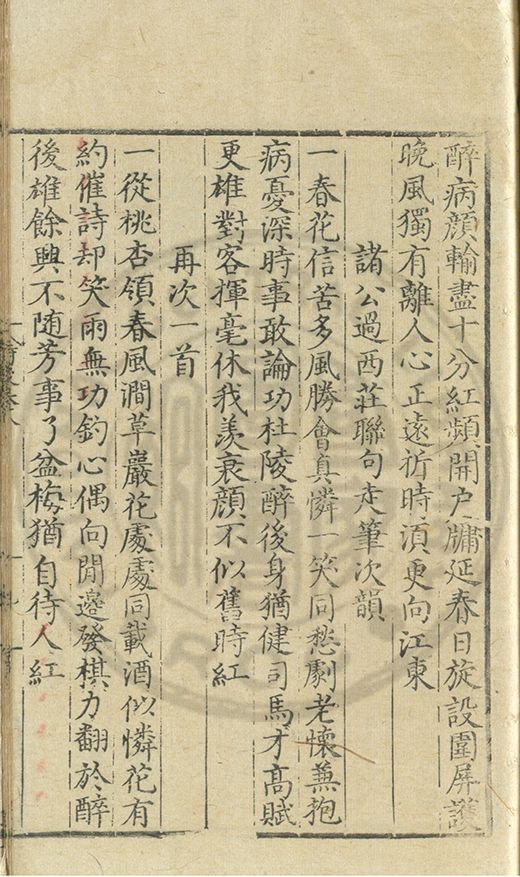 醉病顔輸盡十分紅頻開户牖延春日旋設圍屏護
晚風獨有離人心正遠祈時湏更向江東
諸公過西莊聯句走筆次韻
一春花信苦多風勝會真憐一笑同愁劇老懷兼抱
病憂深時事敢論功杜陵醉後身猶健司馬才高賦
更雄對客揮毫休我羡衰顔不似舊時紅
再次一首
一從桃杏領春風澗草巖花處處同載酒似憐花有
約催詩却笑雨無功釣心偶向閒邊發棋力翻於醉
後雄餘興不随芳事了盆梅猶自待人紅